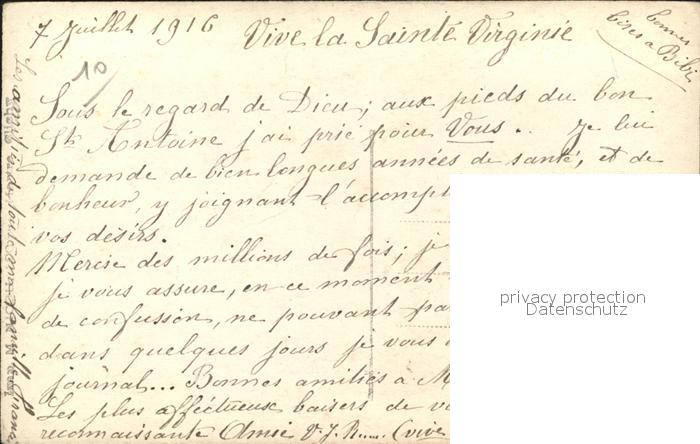 7 Juillet 1916 Vive la Sainte Virginie
bonnes
bises a Bibi
10
Sous le regard de Dieu; aux pieds du bon
St Antoine j'ai prié pour Vous.. Je lui
demande de bien longues années de santé, et de
bonheur, y joignant l'accompl
vos désirs.
Mercie des millions de fois; je
je vous assure, en ce moment
de confusion, ne pouvant pa
dans quelques jours je vous
journal... Bonnes amitiés a M
Les plus afféctueux baisers de vo
reconnaissante Amie V. J. R.... (vive
privacy protection
Datenschutz